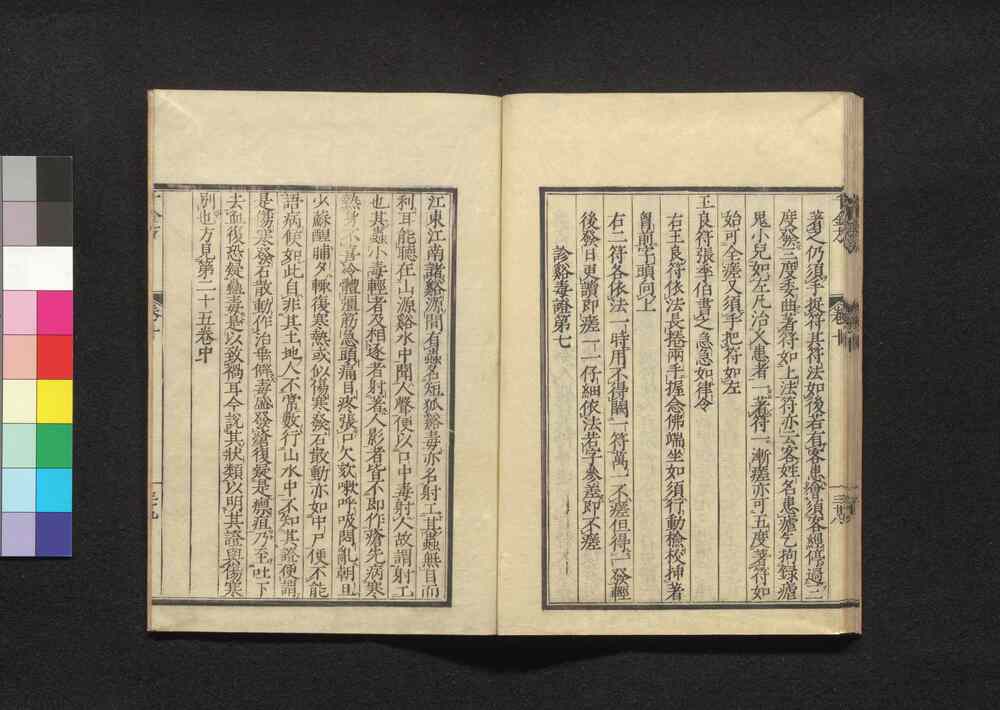 著之仍須手捉符其符法如後若有客患會須客經停過三
度發三度委曲著符如上法符亦云客姓名患瘧乞拘録瘧
鬼小兒如左凡治久患者一著符一漸瘥亦可五度著符如
始可全瘥又須手把符如左
王良符張季伯書之急急如律令
右王良符依法長卷兩手握念佛端坐如須行動檢校插著
胷前字頭向上
右二符各依法一時用不得闕一符萬一不瘥但得一發輕
後發日更讀即瘥一一仔細依法若字參差即不瘥
診谿毒證第七
江東江南諸谿源間有蟲名短狐谿毒亦名射工其蟲無目而
利耳能聽在山源谿水中聞人聲便以口中毒射人故謂射工
也其蟲小毒輕者及相逐者射著人影者皆不即作瘡先病寒
熱身小喜冷體強筋急頭痛目疼張口欠欬嗽呼吸悶亂朝旦
少蘇醒晡夕輒復寒熱或似傷寒發石散動亦如中尸便不能
語病候如此自非其土地人不常數行山水中不知其證便謂
是傷寒發石散動作治乖僻毒盛發瘡復疑是瘭疽乃至吐下
去血復恐疑蠱毒是以致禍耳今說其狀類以明其證與傷寒
別也方見第二十五卷中